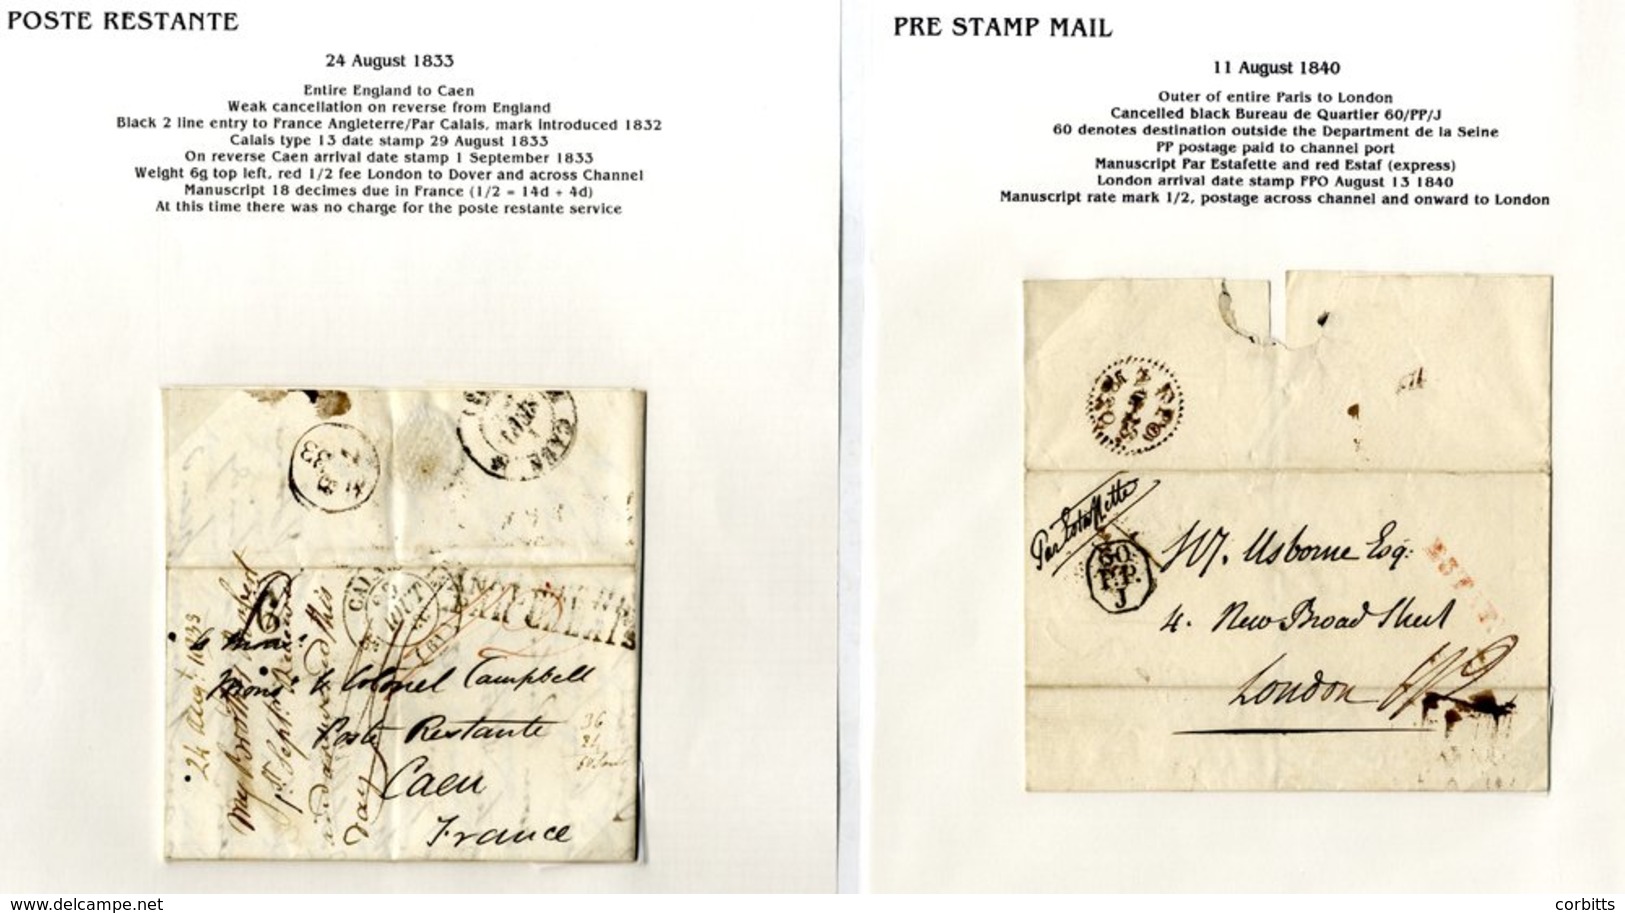 POSTE RESTANTE
24 August 1833
Entire England to Caen
Weak cancellation on reverse from England
Black 2 line entry to France Angleterre/Par Calais, mark introduced 1832
Calais type 13 date stamp 29 August 1833
On reverse Caen arrival date stamp 1 September 1833
Weight 6g top left, red 1/2 fee London to Dover and across Channel
Manuscript 18 decimes due in France (1/2 = 14d + 4d)
At this time there was no charge for the poste restante service
CAEN
24 Augt. 1833
My Brother
1st Septr.
and answered this
Colonel Campbell
Poste Restante
Caen
France
36
24
PRE STAMP MAIL
11 August 1840
Outer of entire Paris to London
Cancelled black Bureau de Quartier 60/PP/J
60 denotes destination outside the Department de la Seine
PP postage paid to channel port
Manuscript Par Estafette and red Estaf (express)
London arrival date stamp FPO August 13 1840
Manuscript rate mark 1/2, postage across channel and onward to London
Par Estaffette
60
P.P.
J
W. Usborne Esq:
4. New Broad Street
London 1/2
www.delcampe.net
corbitts